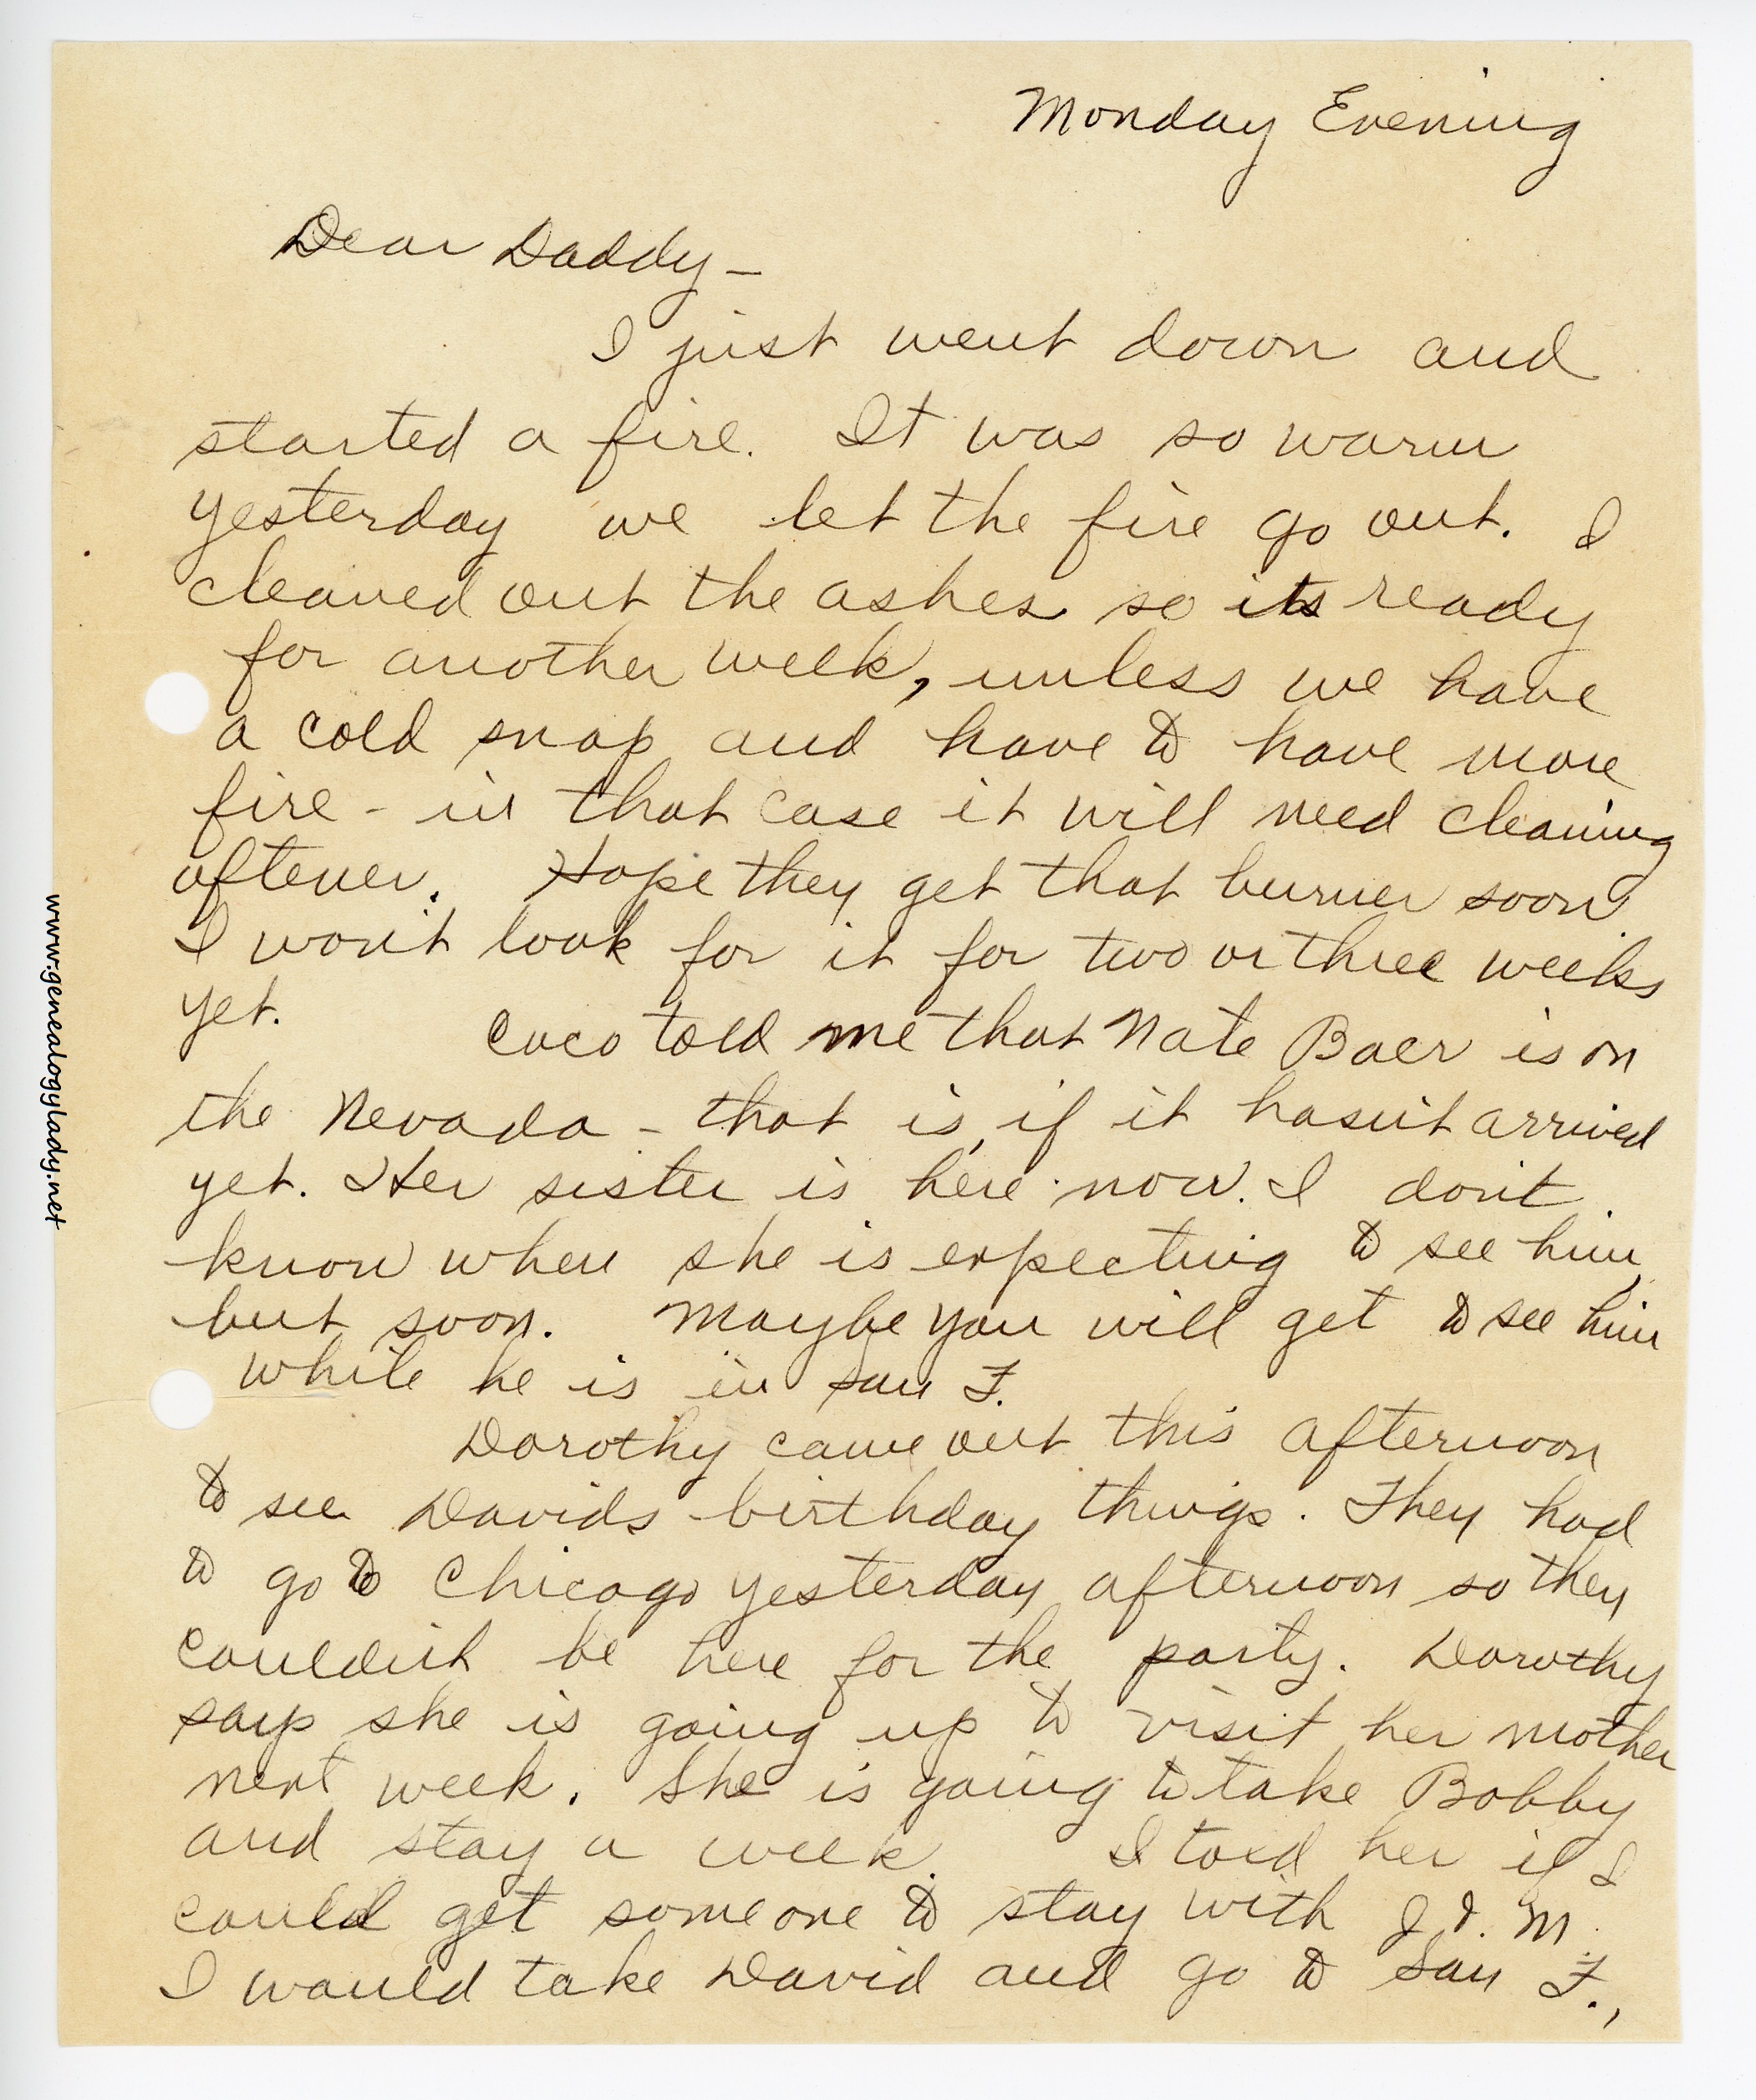 Monday Evening
Dear Daddy —
I just went down and
started a fire. It was so warm
yesterday we let the fire go out. I
cleaned out the ashes so its ready
for another week, unless we have
a cold snap and have to have more
fire - in that case it will need cleaning
oftener. Hope they get that burner soon
I won't look for it for two or three weeks
yet. Coco told me that Nate Baer is on
the Nevada - that is, if it hasn't arrived
yet. Her sister is here now. I don't
know when she is expecting to see him,
but soon. Maybe you will get to see him
while he is in San F.
Dorothy came out this afternoon
to see Davids birthday things. They had
to go to Chicago yesterday afternoon so they
couldn't be here for the party. Dorothy
says she is going up to visit her mother
next week. She is going to take Bobby
and stay a week. I told her if I
could get someone to stay with J. & M.
I would take David and go to San F.,
www.genealogylady.net